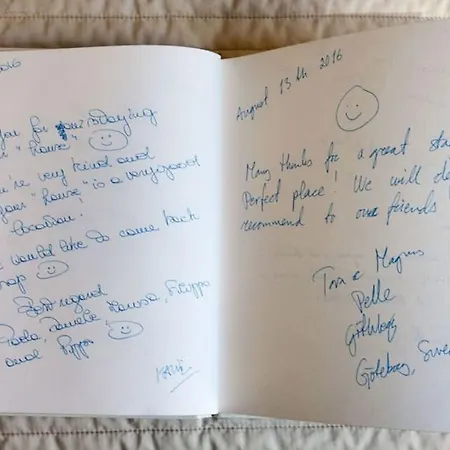 2016
you for your staying
"house"
're very kind and
your "house" is a very good
location!
would like to come back
Best regard
Paola, Daniele,
and
August 13th 2016
Many thanks for a great sta
Perfect place! We will de
recommend to our friends
Magnus
Pelle
Göteborg, Swe